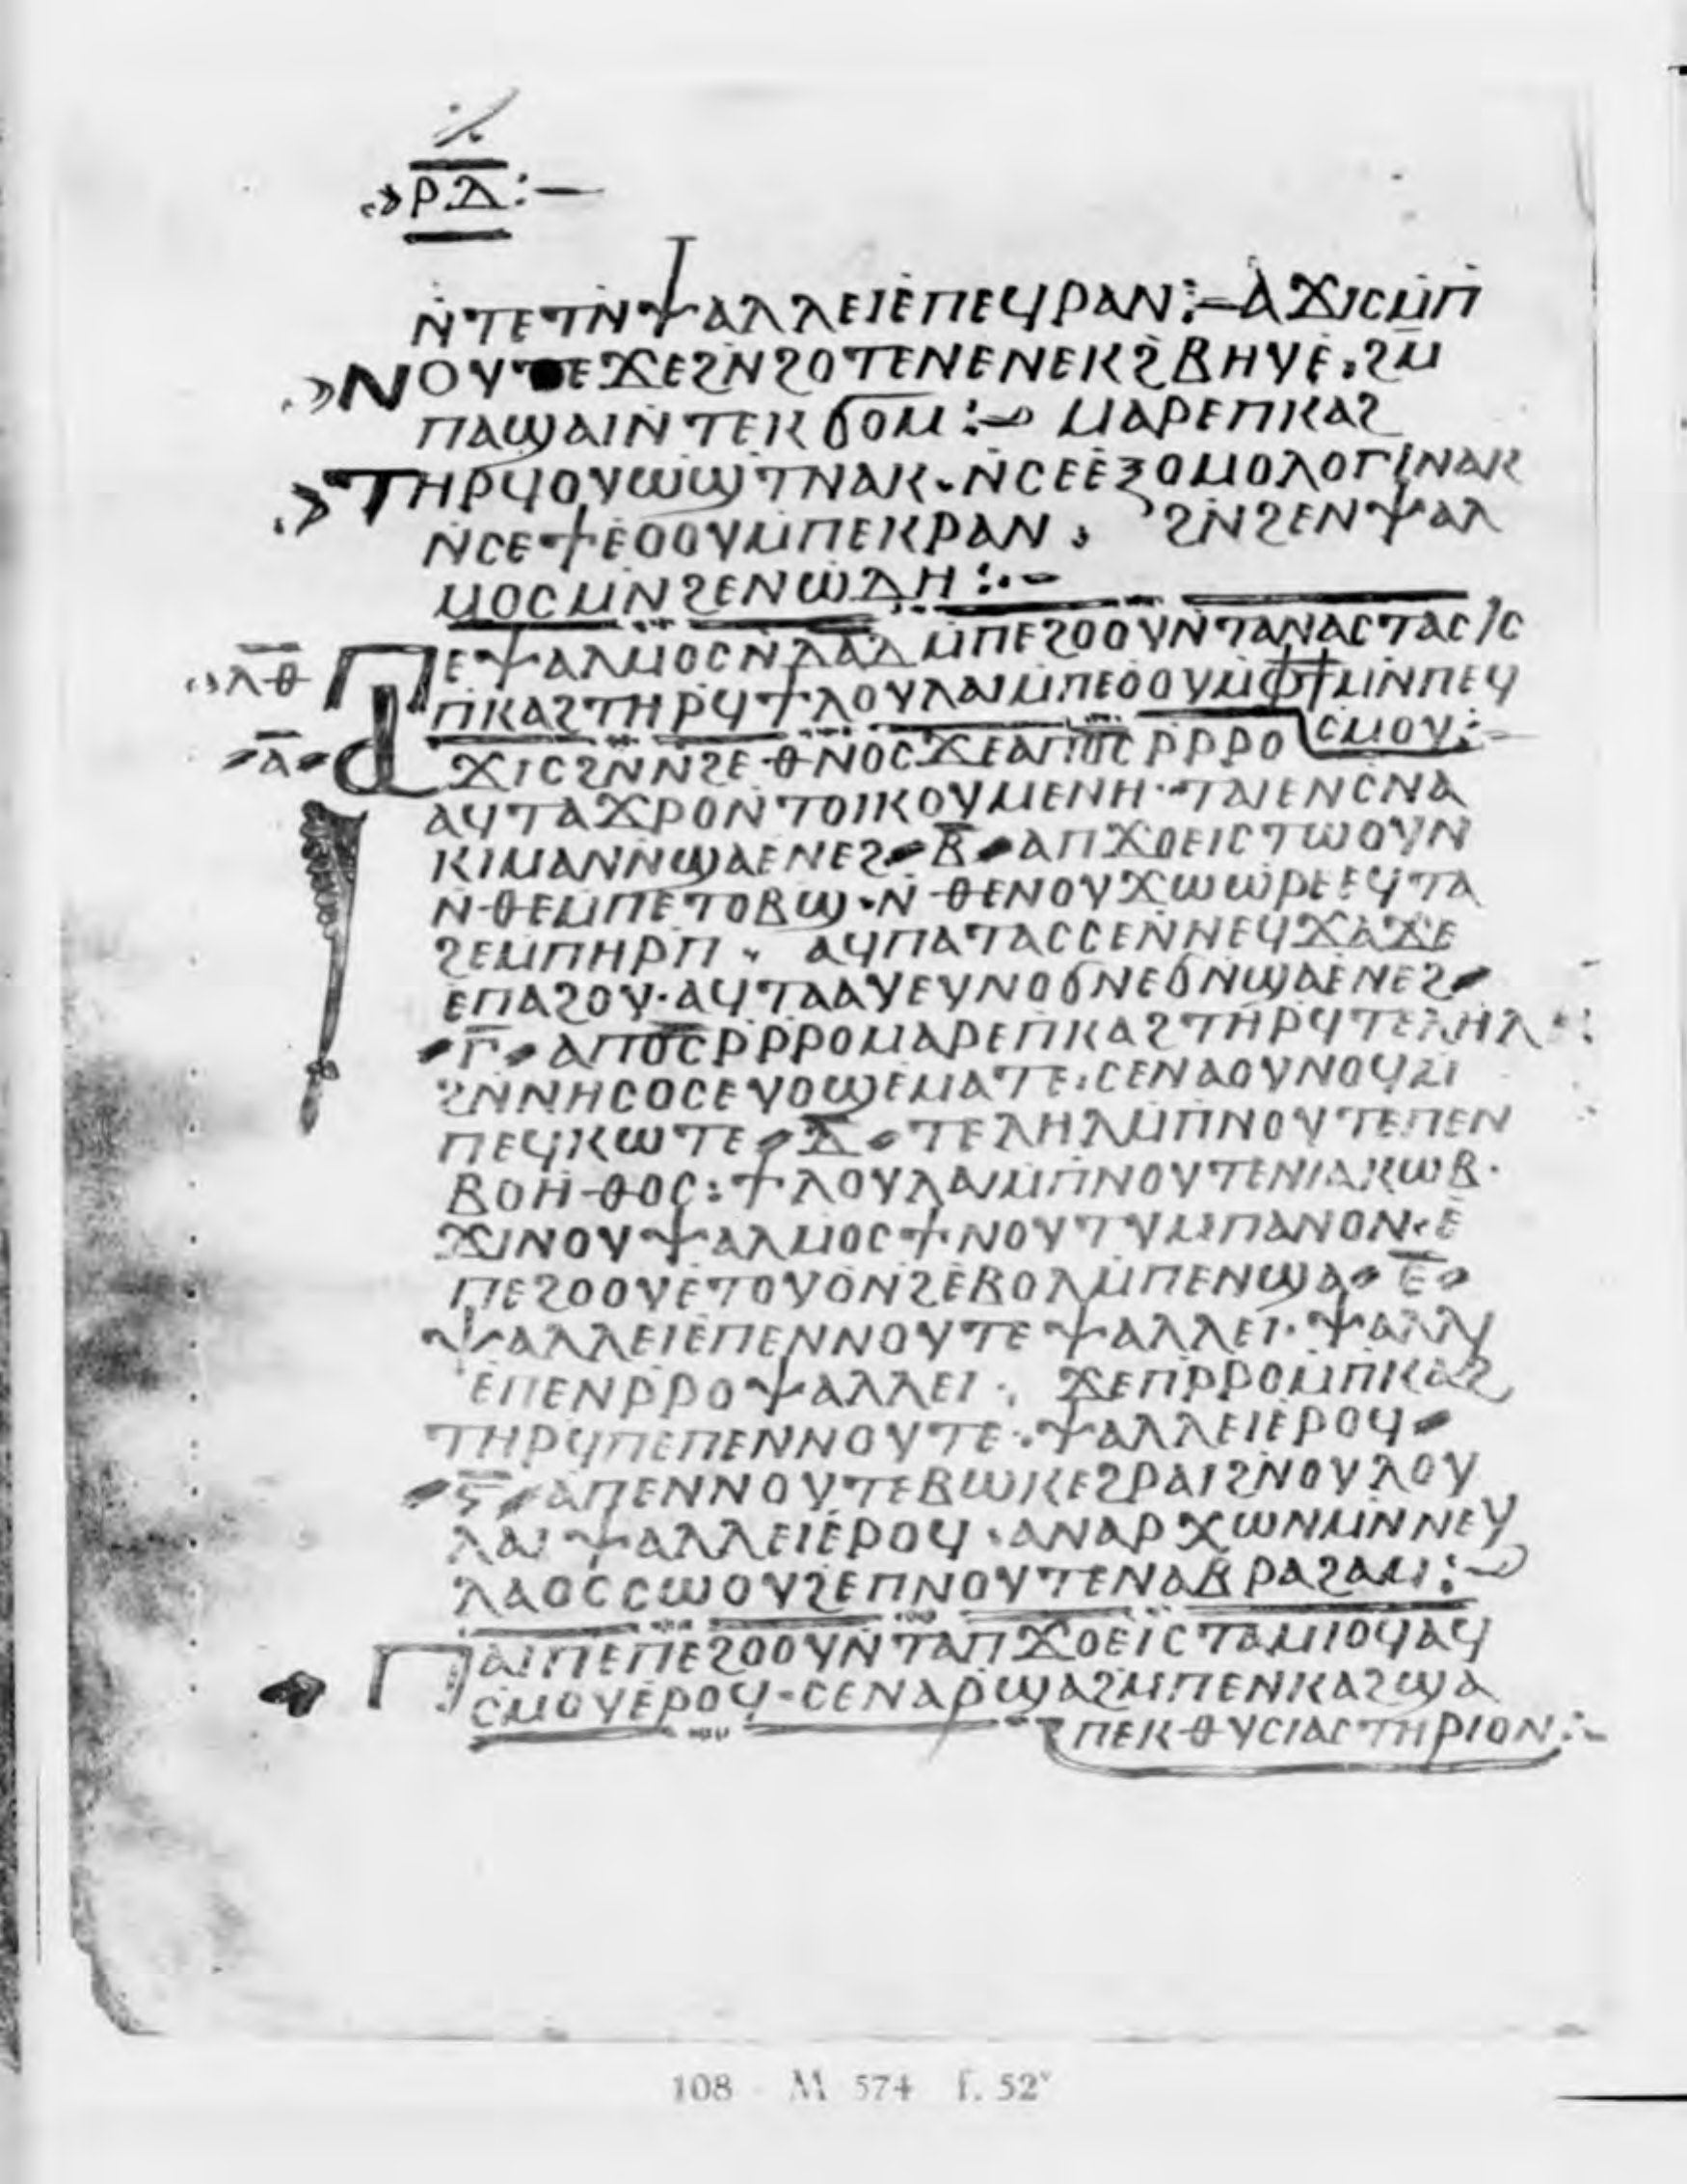 ⲣⲇ:—
ⲛ̇ⲧⲉⲧⲛ̇ⲯⲁⲗⲗⲉⲓⲉ̇ⲡⲉϥⲣⲁⲛ:—ⲁϫⲓⲥⲙ̇ⲡ
ⲛⲟⲩⲧⲉϫⲉϩⲛϩⲟⲧⲉⲛⲉⲛⲉⲕϩⲃⲏⲩⲉ̇.ϩⲙ
ⲡⲁϣⲁⲓⲛ̇ⲧⲉⲕϭⲟⲙ:— ⲙⲁⲣⲉⲡⲕⲁϩ
ⲧⲏⲣϥⲟⲩⲱϣⲧⲛⲁⲕ·ⲛ̇ⲥⲉⲉ̇ⲝⲟⲙⲟⲗⲟⲅⲓⲛⲁⲕ
ⲛ̇ⲥⲉϯⲉ̇ⲟⲟⲩⲙ̇ⲡⲉⲕⲣⲁⲛ, ϩⲛ̇ϩⲉⲛⲯⲁⲗ
ⲙⲟⲥⲙⲛ̇ϩⲉⲛⲱ̇ⲇⲏ:·-
ⲗⲑ ⲡⲉⲯⲁⲗⲙⲟⲥⲛ̇ⲇⲁⲇ ⲙ̇ⲡⲉϩⲟⲟⲩⲛ̇ⲧⲁⲛⲁⲥⲧⲁⲥⲓⲥ
ⲡⲕⲁϩⲧⲏⲣϥϯⲗⲟⲩⲗⲁⲓⲙ̇ⲡⲉⲟⲟⲩⲙ̇ⲫϯⲙⲛ̇ⲡⲉϥ
ⲥⲙⲟⲩ:—
ⲁ̅ ⲁϫⲓⲥϩⲛⲛϩⲉⲑⲛⲟⲥϫⲉⲁⲡⲟ̅ⲥ̅ⲣⲣⲣⲟ
ⲁϥⲧⲁϫⲣⲟⲛ̇ⲧⲟⲓⲕⲟⲩⲙⲉⲛⲏ·ⲧⲁⲓⲉⲛⲥⲛⲁ
ⲕⲓⲙⲁⲛⲛ̇ϣⲁⲉⲛⲉϩ ⲃ̅ ⲁⲡϫⲟⲉⲓⲥⲧⲱⲟⲩⲛ
ⲛ̇ⲑⲉⲙ̇ⲡⲉⲧⲟⲃϣ·ⲛ̇ⲑⲉⲛⲟⲩϫⲱⲱ̇ⲣⲉⲉϥⲧⲁ
ϩⲉⲙⲡⲏⲣⲡ· ⲁϥⲡⲁⲧⲁⲥⲥⲉⲛ̇ⲛⲉϥϫⲁϫⲉ
ⲉ̇ⲡⲁϩⲟⲩ·ⲁϥⲧⲁⲁⲩⲉⲩⲛⲟϭⲛⲉϭⲛ̇ϣⲁⲉ̇ⲛⲉϩ
ⲅ̅ ⲁⲡⲟ̅ⲥ̅ⲣⲣⲣⲟⲙⲁⲣⲉⲡⲕⲁϩⲧⲏⲣϥⲧⲉⲗⲏⲗ
ϩⲛⲛⲏⲥⲟⲥⲉⲩⲟϣⲉⲙⲁⲧⲉ:ⲥⲉⲛⲁⲟⲩⲛⲟϥⲙ
ⲡⲉϥⲕⲱⲧⲉ ⲇ̅ ⲧⲉⲗⲏⲗⲙ̇ⲡⲛⲟⲩⲧⲉⲡⲉⲛ
ⲃⲟⲏⲑⲟⲥ:ϯⲗⲟⲩⲗⲁⲓⲙ̇ⲡⲛⲟⲩⲧⲉⲛⲓⲁⲕⲱⲃ·
ϫⲓⲛⲟⲩⲯⲁⲗⲙⲟⲥϯⲛⲟⲩⲧⲩⲙⲡⲁⲛⲟⲛ·ⲉ̇
ⲡⲉϩⲟⲟⲩⲉ̇ⲧⲟⲩⲟ̇ⲛϩⲉ̇ⲃⲟⲗⲙ̇ⲡⲉⲛϣⲁ ⲉ̅
ⲯⲁⲗⲗⲉⲓⲉ̇ⲡⲉⲛⲛⲟⲩⲧⲉⲯⲁⲗⲗⲉⲓ·ⲯⲁⲗⲗⲓ
ⲉ̇ⲡⲉⲛⲣⲣⲟⲯⲁⲗⲗⲉⲓ· ϫⲉⲡⲣⲣⲟⲙ̇ⲡⲕⲁϩ
ⲧⲏⲣϥⲡⲉⲡⲉⲛⲛⲟⲩⲧⲉ·ⲯⲁⲗⲗⲉⲓⲉ̇ⲣⲟϥ
ⲋ̅ ⲁⲡⲉⲛⲛⲟⲩⲧⲉⲃⲱⲕⲉϩⲣⲁⲓϩⲛⲟⲩⲗⲟⲩ
ⲗⲁⲓⲯⲁⲗⲗⲉⲓⲉ̇ⲣⲟϥ·ⲁⲛⲁⲣⲭⲱⲛⲙⲛ̇ⲛⲉϥ
ⲗⲁⲟⲥⲥⲱⲟⲩϩⲉⲡⲛⲟⲩⲧⲉⲛⲁⲃⲣⲁϩⲁⲙ:—
ⲡⲁⲓⲡⲉⲡⲉϩⲟⲟⲩⲛ̇ⲧⲁⲡϫⲟⲉⲓⲥⲧⲁⲙⲓⲟϥⲁϥ
ⲥⲙⲟⲩⲉ̇ⲣⲟϥ·ⲥⲉⲛⲁⲣ̇ϣⲁϩⲙⲡⲉⲛⲕⲁϩϣⲁ
ⲡⲉⲕⲑⲩⲥⲓⲁⲥⲧⲏⲣⲓⲟⲛ:-
108 - M 574 f. 52ᵛ